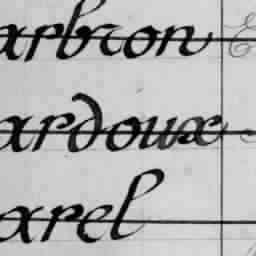 arbion
ardoux
arel